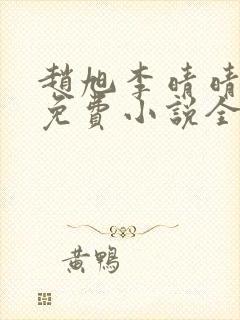 趙旭李晴晴
免費小說全
黃鴨